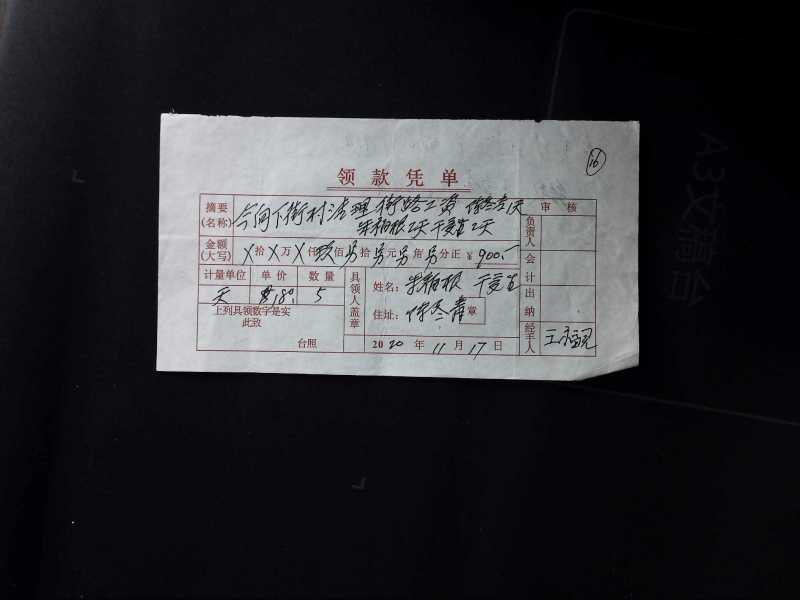 16
领款凭单
摘要(名称) 今向下街村清理街路工资 1天
朱柏根2天 2天
审核
负责人
金额(大写) X拾X万X仟玖佰另拾另元另角另分正 ¥900.-
会计
计量单位 单价 数量
天 180 5
具领人盖章
姓名: 朱柏根
住址: 章
出纳
上列具领数字是实
此致
台照
2020年11月17日
经手人 王
A3文稿台